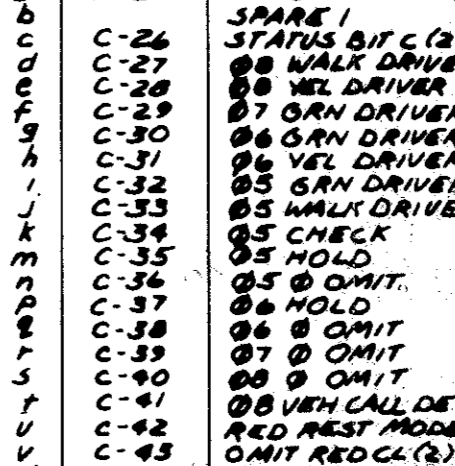 b SPARE 1
c C-26 STATUS BIT C (2
d C-27 Ø8 WALK DRIVE
e C-28 Ø8 YEL DRIVER
f C-29 Ø7 GRN DRIVER
g C-30 Ø6 GRN DRIVER
h C-31 Ø6 YEL DRIVER
i C-32 Ø5 GRN DRIVER
j C-33 Ø5 WALK DRIVE
k C-34 Ø5 CHECK
m C-35 Ø5 HOLD
n C-36 Ø5 Ø OMIT
p C-37 Ø6 HOLD
q C-38 Ø6 Ø OMIT
r C-39 Ø7 Ø OMIT
s C-40 Ø8 Ø OMIT
t C-41 Ø8 VEH CALL DE
u C-42 RED REST MODE
v C-43 OMIT RED CL (2)